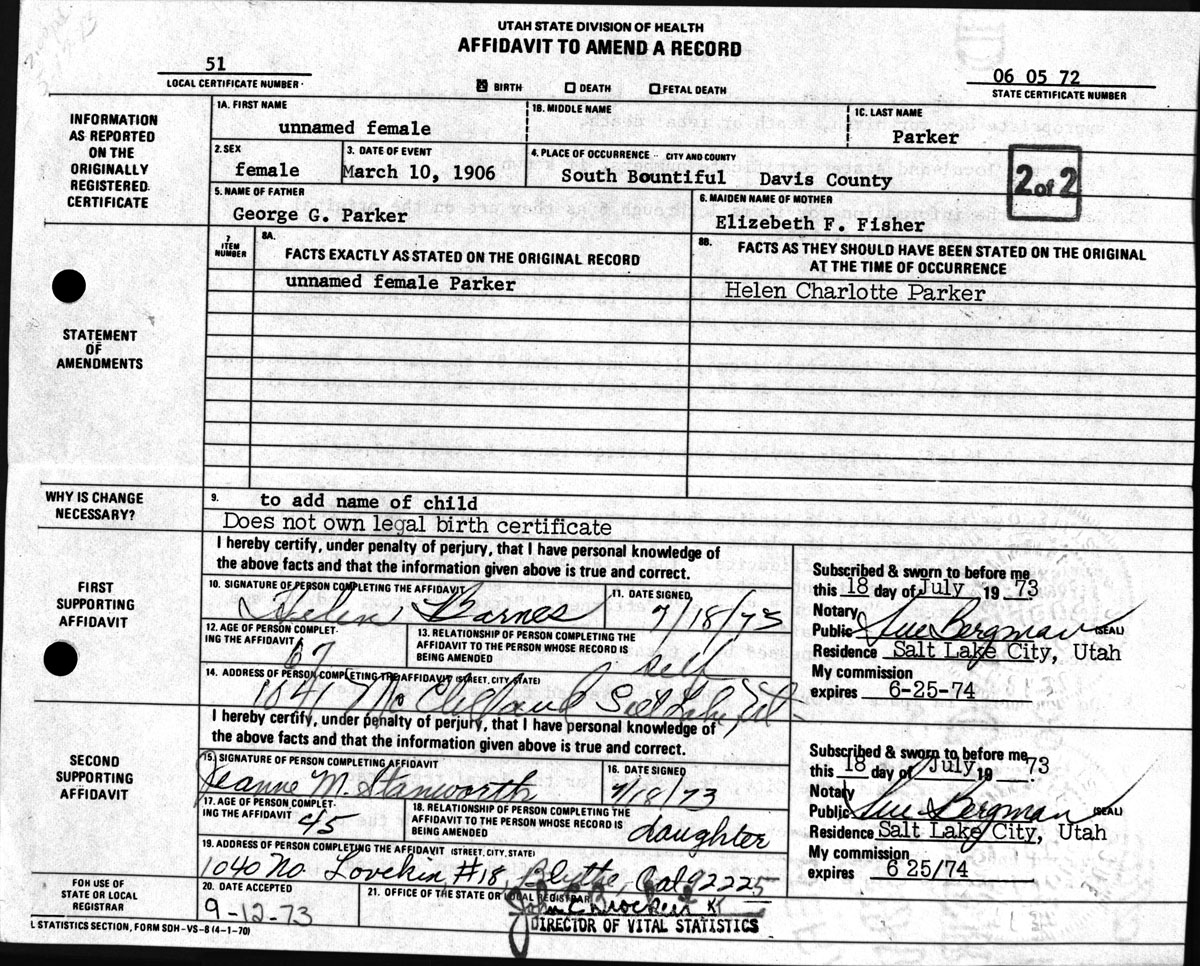 UTAH STATE DIVISION OF HEALTH
AFFIDAVIT TO AMEND A RECORD
51
LOCAL CERTIFICATE NUMBER
BIRTH DEATH FETAL DEATH
06 05 72
STATE CERTIFICATE NUMBER
INFORMATION
AS REPORTED
ON THE
ORIGINALLY
REGISTERED
CERTIFICATE
1A. FIRST NAME
unnamed female
1B. MIDDLE NAME
1C. LAST NAME
Parker
2. SEX
female
3. DATE OF EVENT
March 10, 1906
4. PLACE OF OCCURRENCE -- CITY AND COUNTY
South Bountiful Davis County
2 of 2
5. NAME OF FATHER
George G. Parker
6. MAIDEN NAME OF MOTHER
Elizebeth F. Fisher
STATEMENT
OF
AMENDMENTS
7
ITEM
NUMBER
8A.
FACTS EXACTLY AS STATED ON THE ORIGINAL RECORD
unnamed female Parker
8B.
FACTS AS THEY SHOULD HAVE BEEN STATED ON THE ORIGINAL
AT THE TIME OF OCCURRENCE
Helen Charlotte Parker
WHY IS CHANGE
NECESSARY?
9.
to add name of child
Does not own legal birth certificate
FIRST
SUPPORTING
AFFIDAVIT
I hereby certify, under penalty of perjury, that I have personal knowledge of
the above facts and that the information given above is true and correct.
10. SIGNATURE OF PERSON COMPLETING THE AFFIDAVIT
Helen Barnes
11. DATE SIGNED
7/18/73
12. AGE OF PERSON COMPLET-
ING THE AFFIDAVIT
67
13. RELATIONSHIP OF PERSON COMPLETING THE
AFFIDAVIT TO THE PERSON WHOSE RECORD IS
BEING AMENDED
self
14. ADDRESS OF PERSON COMPLETING THE AFFIDAVIT (STREET, CITY, STATE)
1841 McClelland Salt Lake, Ut
Subscribed & sworn to before me
this 18 day of July 19 73
Notary
Public Sue Bergman (SEAL)
Residence Salt Lake City, Utah
My commission
expires 6-25-74
SECOND
SUPPORTING
AFFIDAVIT
I hereby certify, under penalty of perjury, that I have personal knowledge of
the above facts and that the information given above is true and correct.
15. SIGNATURE OF PERSON COMPLETING AFFIDAVIT
Jeanne M. Stanworth
16. DATE SIGNED
7/18/73
17. AGE OF PERSON COMPLET-
ING THE AFFIDAVIT
45
18. RELATIONSHIP OF PERSON COMPLETING THE
AFFIDAVIT TO THE PERSON WHOSE RECORD IS
BEING AMENDED
daughter
19. ADDRESS OF PERSON COMPLETING THE AFFIDAVIT (STREET, CITY, STATE)
1040 No. Lovekin #18, Blythe, Cal 92225
Subscribed & sworn to before me
this 18 day of July 19 73
Notary
Public Sue Bergman (SEAL)
Residence Salt Lake City, Utah
My commission
expires 6 25/74
FOR USE OF
STATE OR LOCAL
REGISTRAR
20. DATE ACCEPTED
9-12-73
21. OFFICE OF THE STATE OR LOCAL REGISTRAR
John E. Brockert
DIRECTOR OF VITAL STATISTICS
L STATISTICS SECTION, FORM SDH-VS-8 (4-1-70)